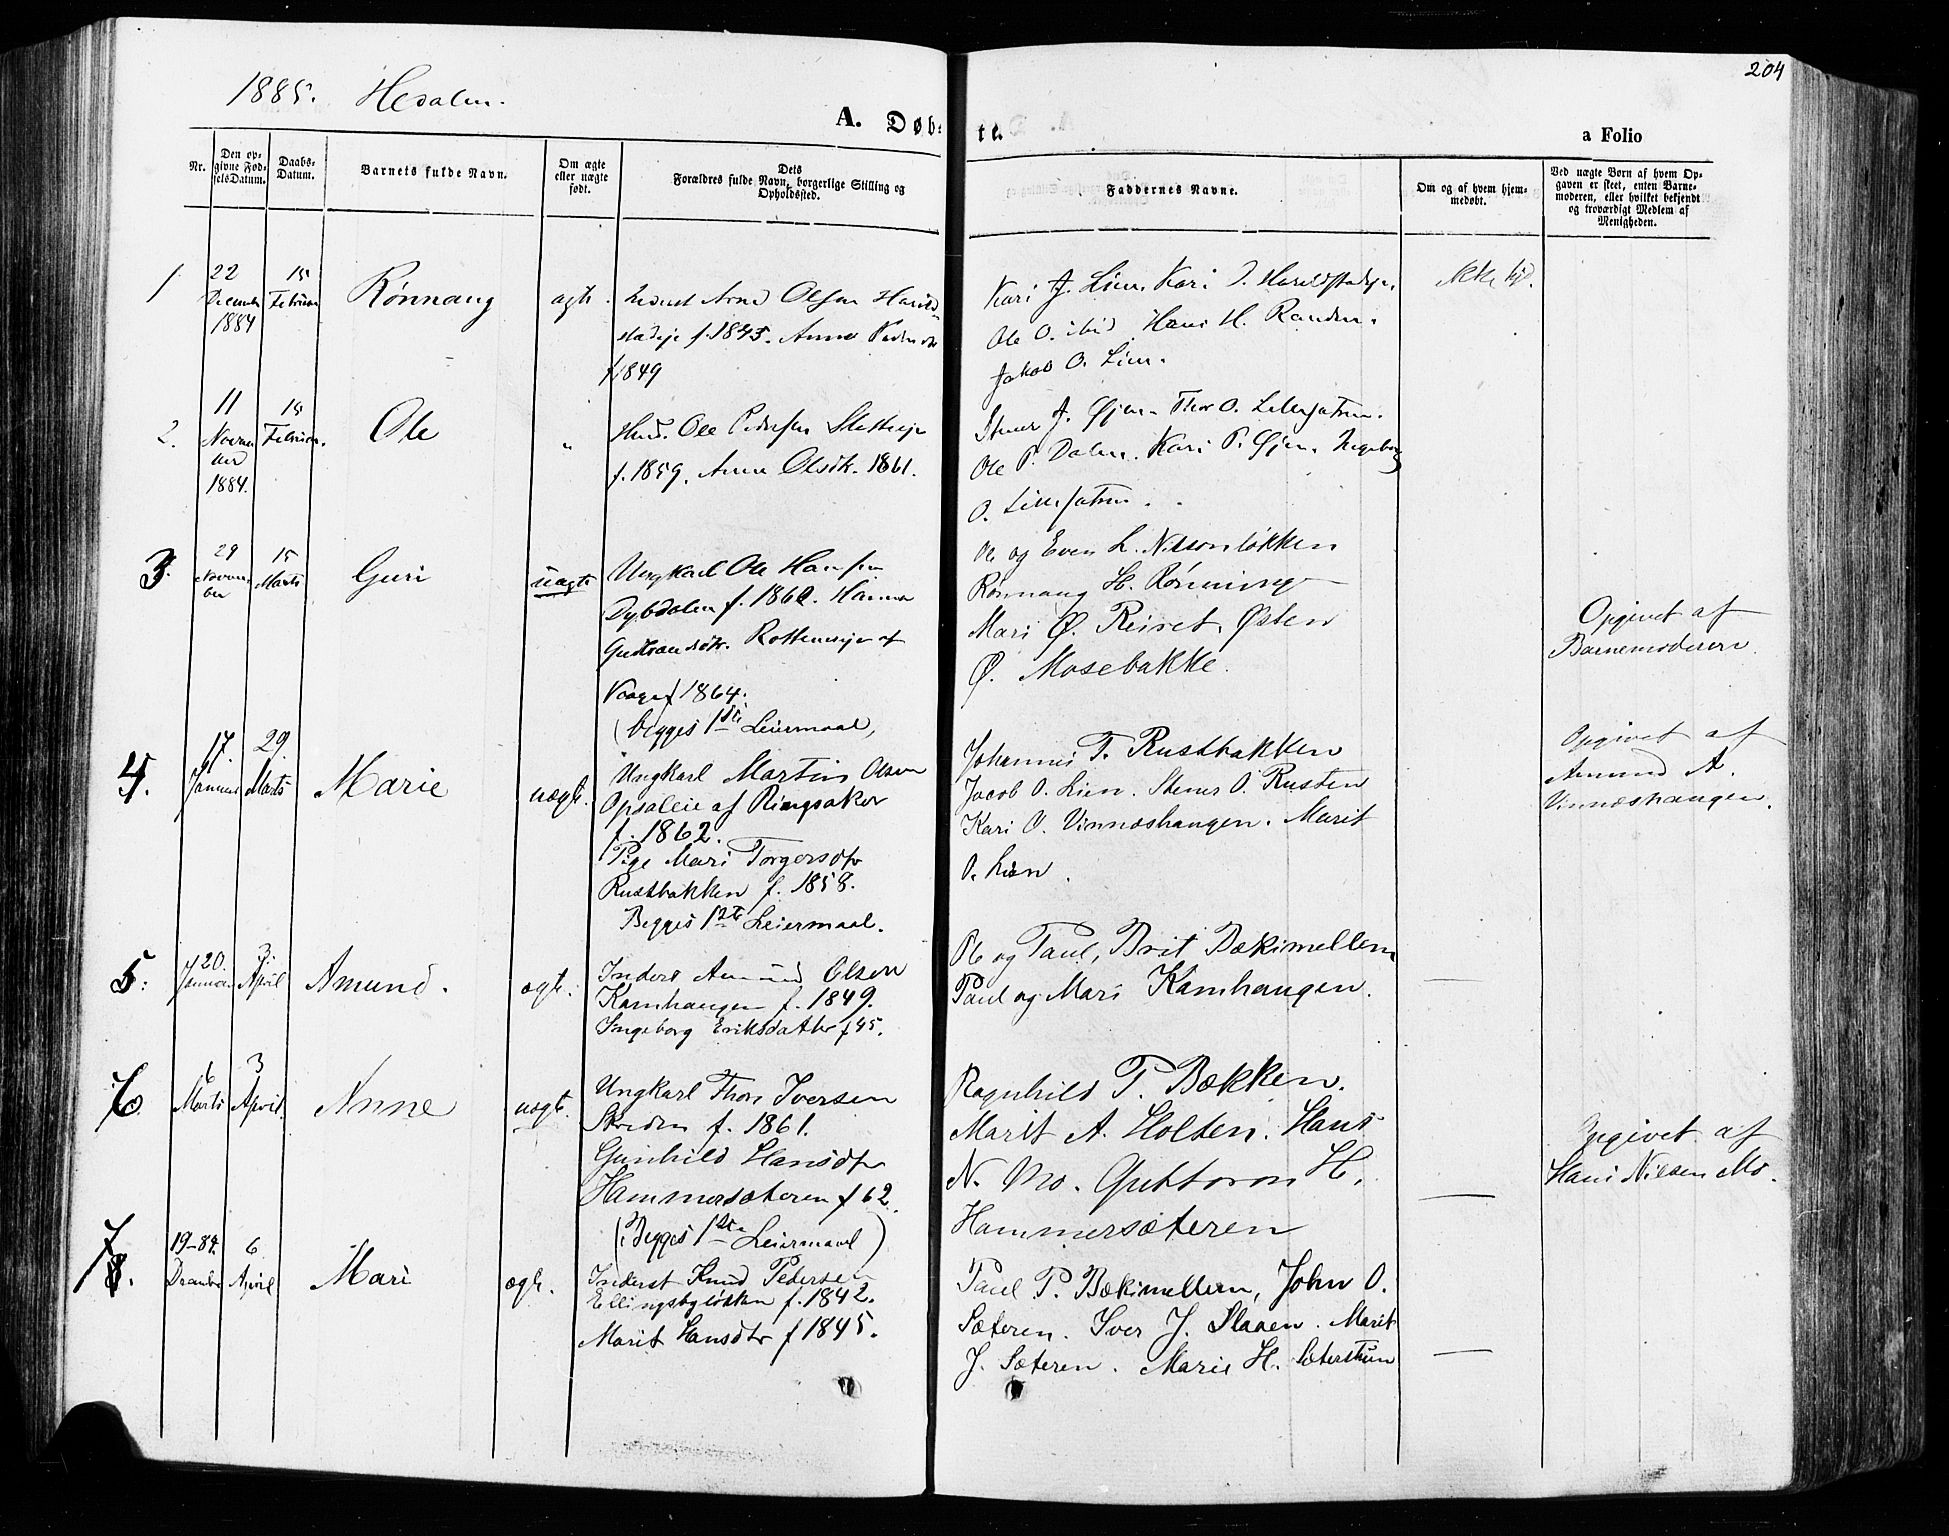 204
1885. Hedalen.
A. Døbte.
a Folio
Nr.
Den opgivne Fødsels Datum.
Daabs-Datum.
Barnets fulde Navn.
Om ægte eller uægte født.
Dets Forældres fulde Navn, borgerlige Stilling og Opholdssted.
Faddernes Navne.
Om og af hvem hjemmedøbt.
Ved uægte Børn af hvem Opgaven er skeet, enten Barnemoderen, eller hvilket bekjendt og troværdigt Medlem af Menigheden.
1
22 December 1884
15 Februar
Rønnaug
ægte.
Inderst Arne Olsen Harild-
stadeje f. 1845. Anne
f 1849
Kari J. Lien. Kari O. Haraldstadeje.
Ole O. ibid Hans H. Randen.
Jakob O. Lien.
Ikke hjd.
2.
11 November 1884.
15 Februar.
Ole
"
Husm. Ole Pedersen
f. 1859. Anne Olsdtr. 1861.
Stener J. Øjen. Thor O. Lillesætren.
Ole P. Dalen. Kari P. Øjen. Ingeborg
O. Lillesætren.
3.
29 November
15 Marts
Guri
uægte
Ungkarl Ole Hansen
Dybdalen f. 1860. Hanna
Gudbrandsdtr. af
Vaage f 1864.
(begges 1ste Leiermaal,
Ole og Even L. Nilsonløkken
Rønnaug H. Rønning
Mari Ø. Reiret. Østen
Ø. Mosebakke.
Opgivet af
Barnemoderen.
4.
17. Januar
29. Marts
Marie
uægte.
Ungkarl Martin Olsen
Opsaleie af Ringsaker
f. 1862.
Pige Mari Torgersdtr
Rustbakken f. 1858.
Begges 1ste Leiermaal.
Johannes T. Rustbakken
Jacob O. Lien. Stener O. Rusten
Kari O. Vinnæshaugen. Marit
O. Lien.
Opgivet af
Amund A.
Vinnæshaugen.
5.
20. Januar
3. April
Amund.
ægte.
Inderst Amund Olsen
Kamhaugen f. 1849.
Ingeborg Eriksdatter f 45.
Ole og Paul, Brit Bækimellem
Paul og Mari Kamhaugen.
6
6 Marts
3 April.
Anne
uægte.
Ungkarl Thor Iversen
Skreden f. 1861.
Gunhild Hansdtr
Hammersæteren f 62.
(: Begges 1ste Leiermaal)
Ragnhild P. Bækken.
Marit A. Holten. Hans
N. Mo. Guttorm H.
Hammersæteren
Opgivet af
Hans Nilsen Mo.
7
19-84. December
6 April
Mari
ægte.
Inderst Knud Pedersen
Ellingsbyløkken f. 1842.
Marit Hansdtr f 1845.
Paul P. Bækimellem, John O.
Sæteren. Iver J. Slaaen. Marit
J. Sæteren. Marie H. Sæterstuen